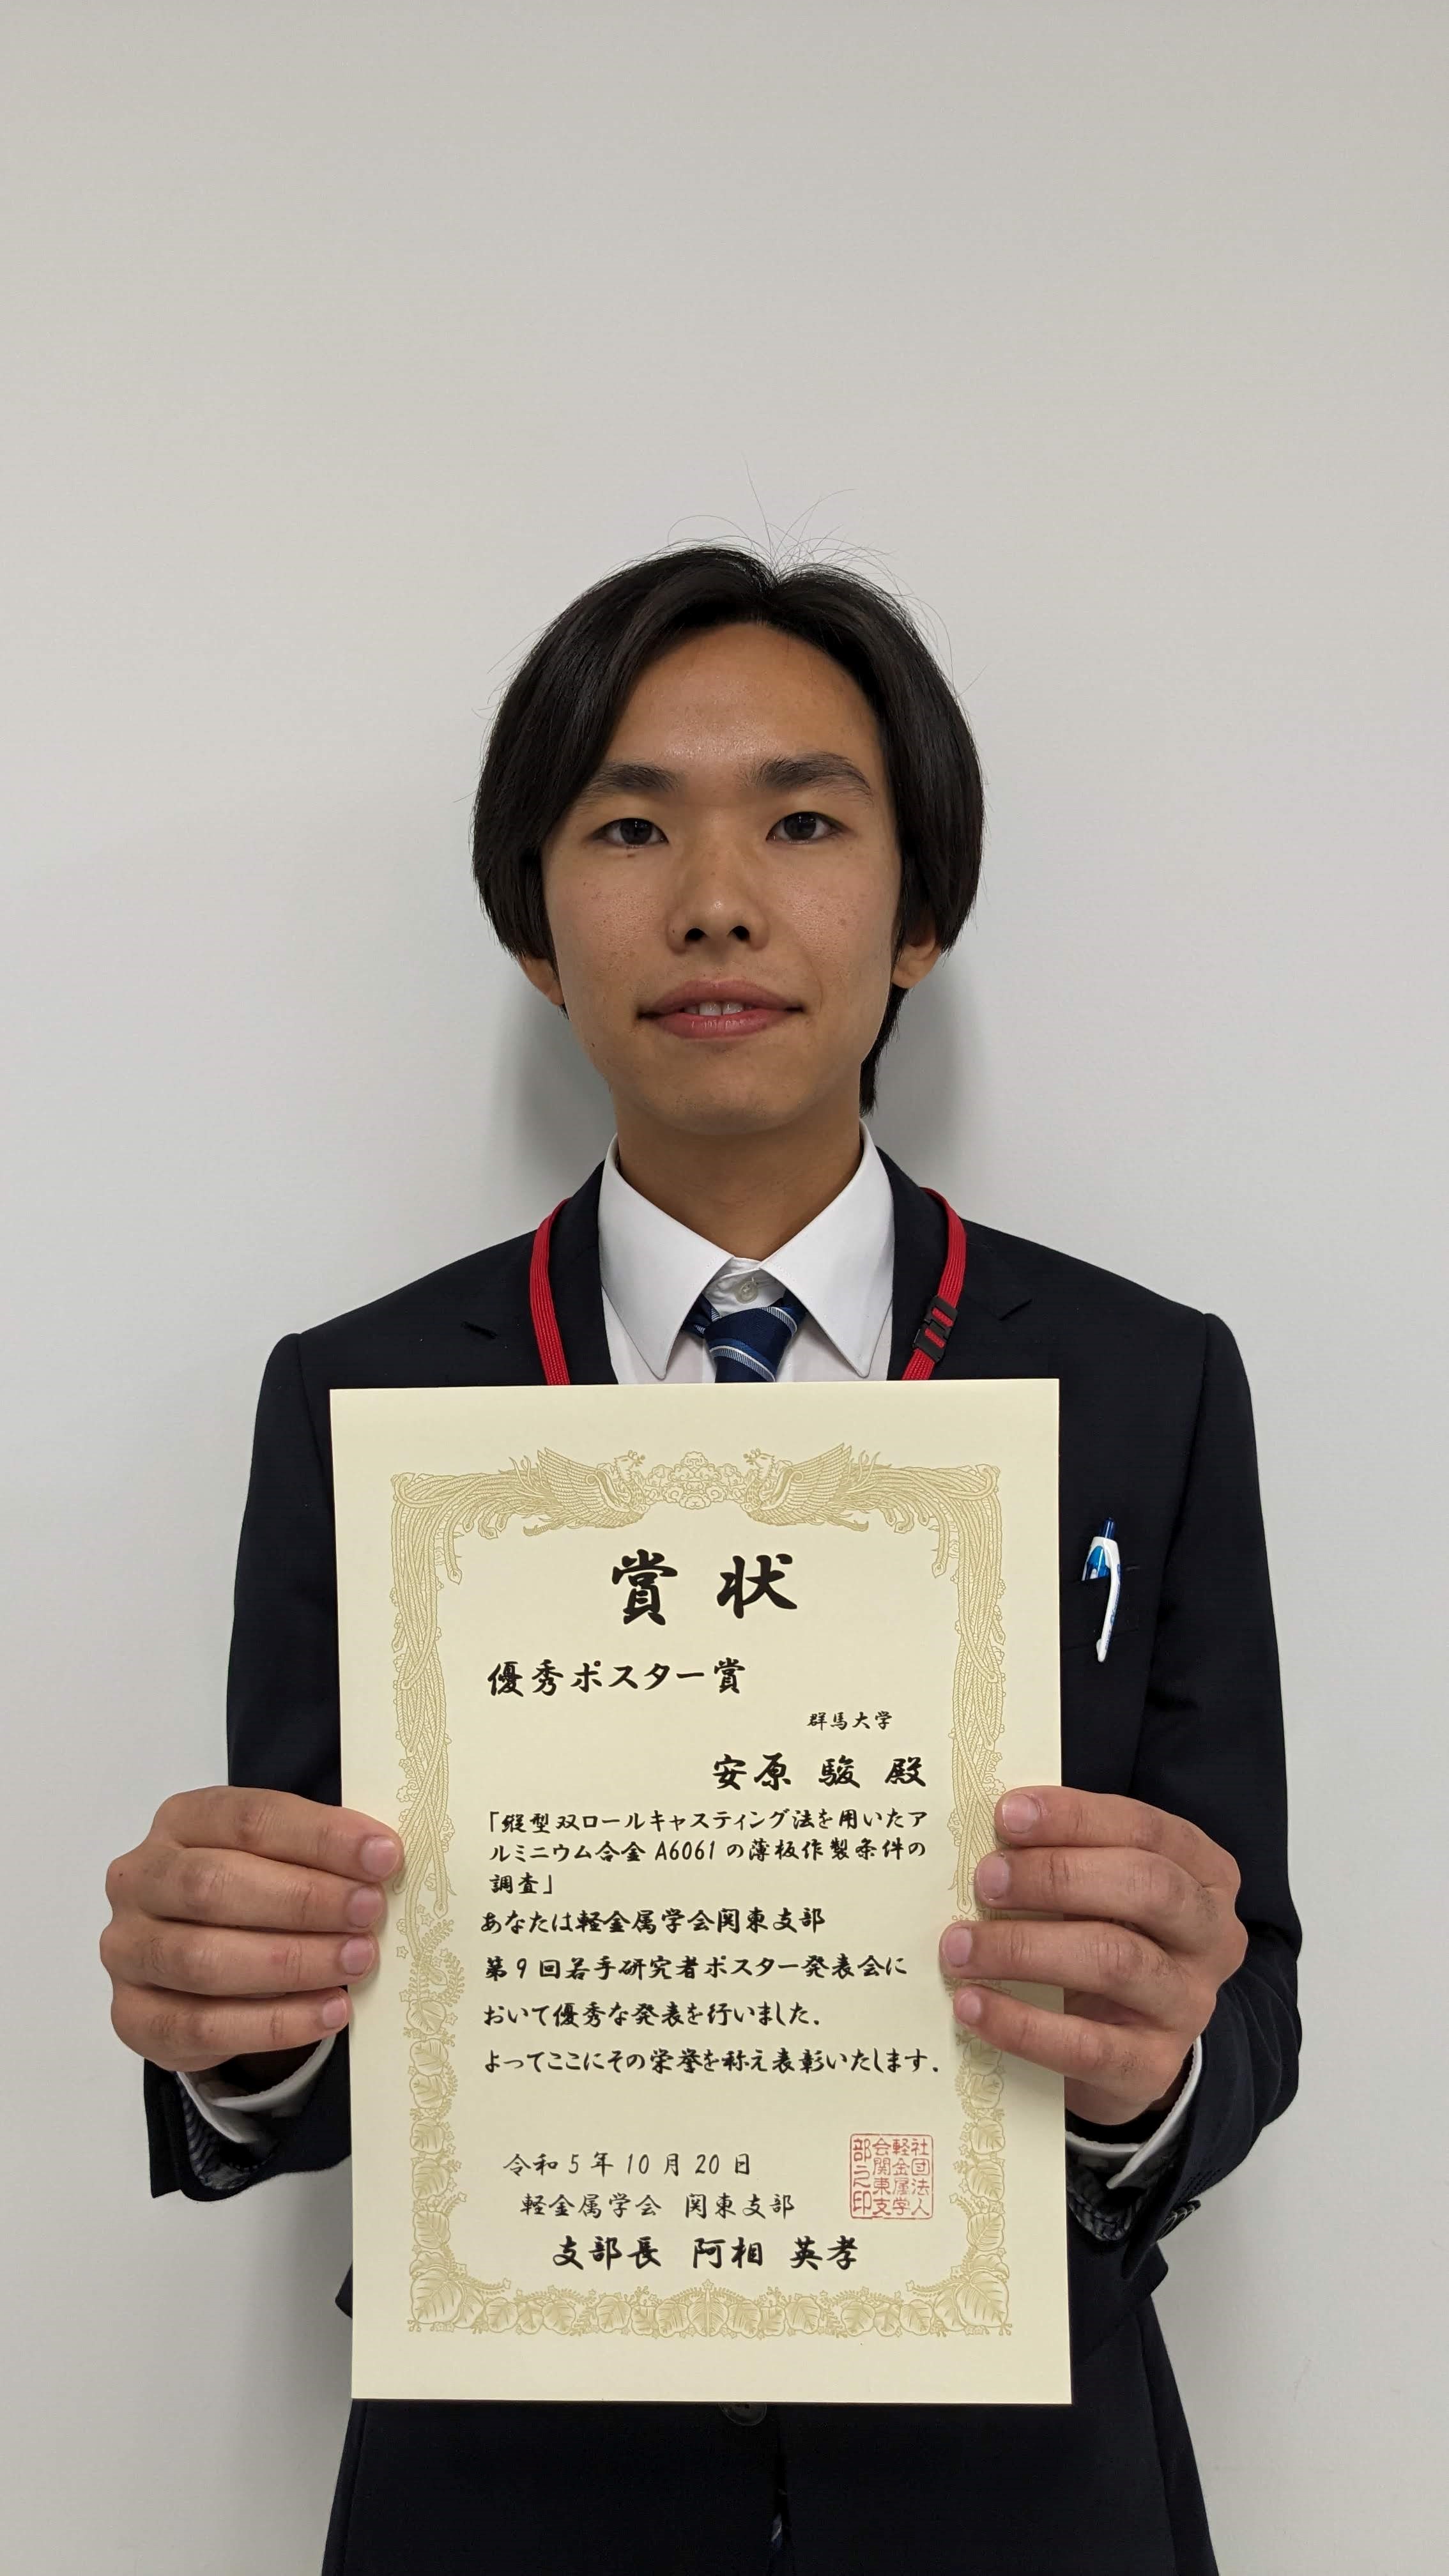 賞状
優秀ポスター賞
群馬大学
安原 駿 殿
「縦型双ロールキャスティング法を用いたア
ルミニウム合金 A6061 の薄板作製条件の
調査」
あなたは軽金属学会関東支部
第9回若手研究者ポスター発表会に
おいて優秀な発表を行いました.
よってここにその栄誉を称え表彰いたします.
令和5年10月20日
軽金属学会 関東支部
支部長 阿相 英孝
社団法人
軽金属学
会関東支
部之印